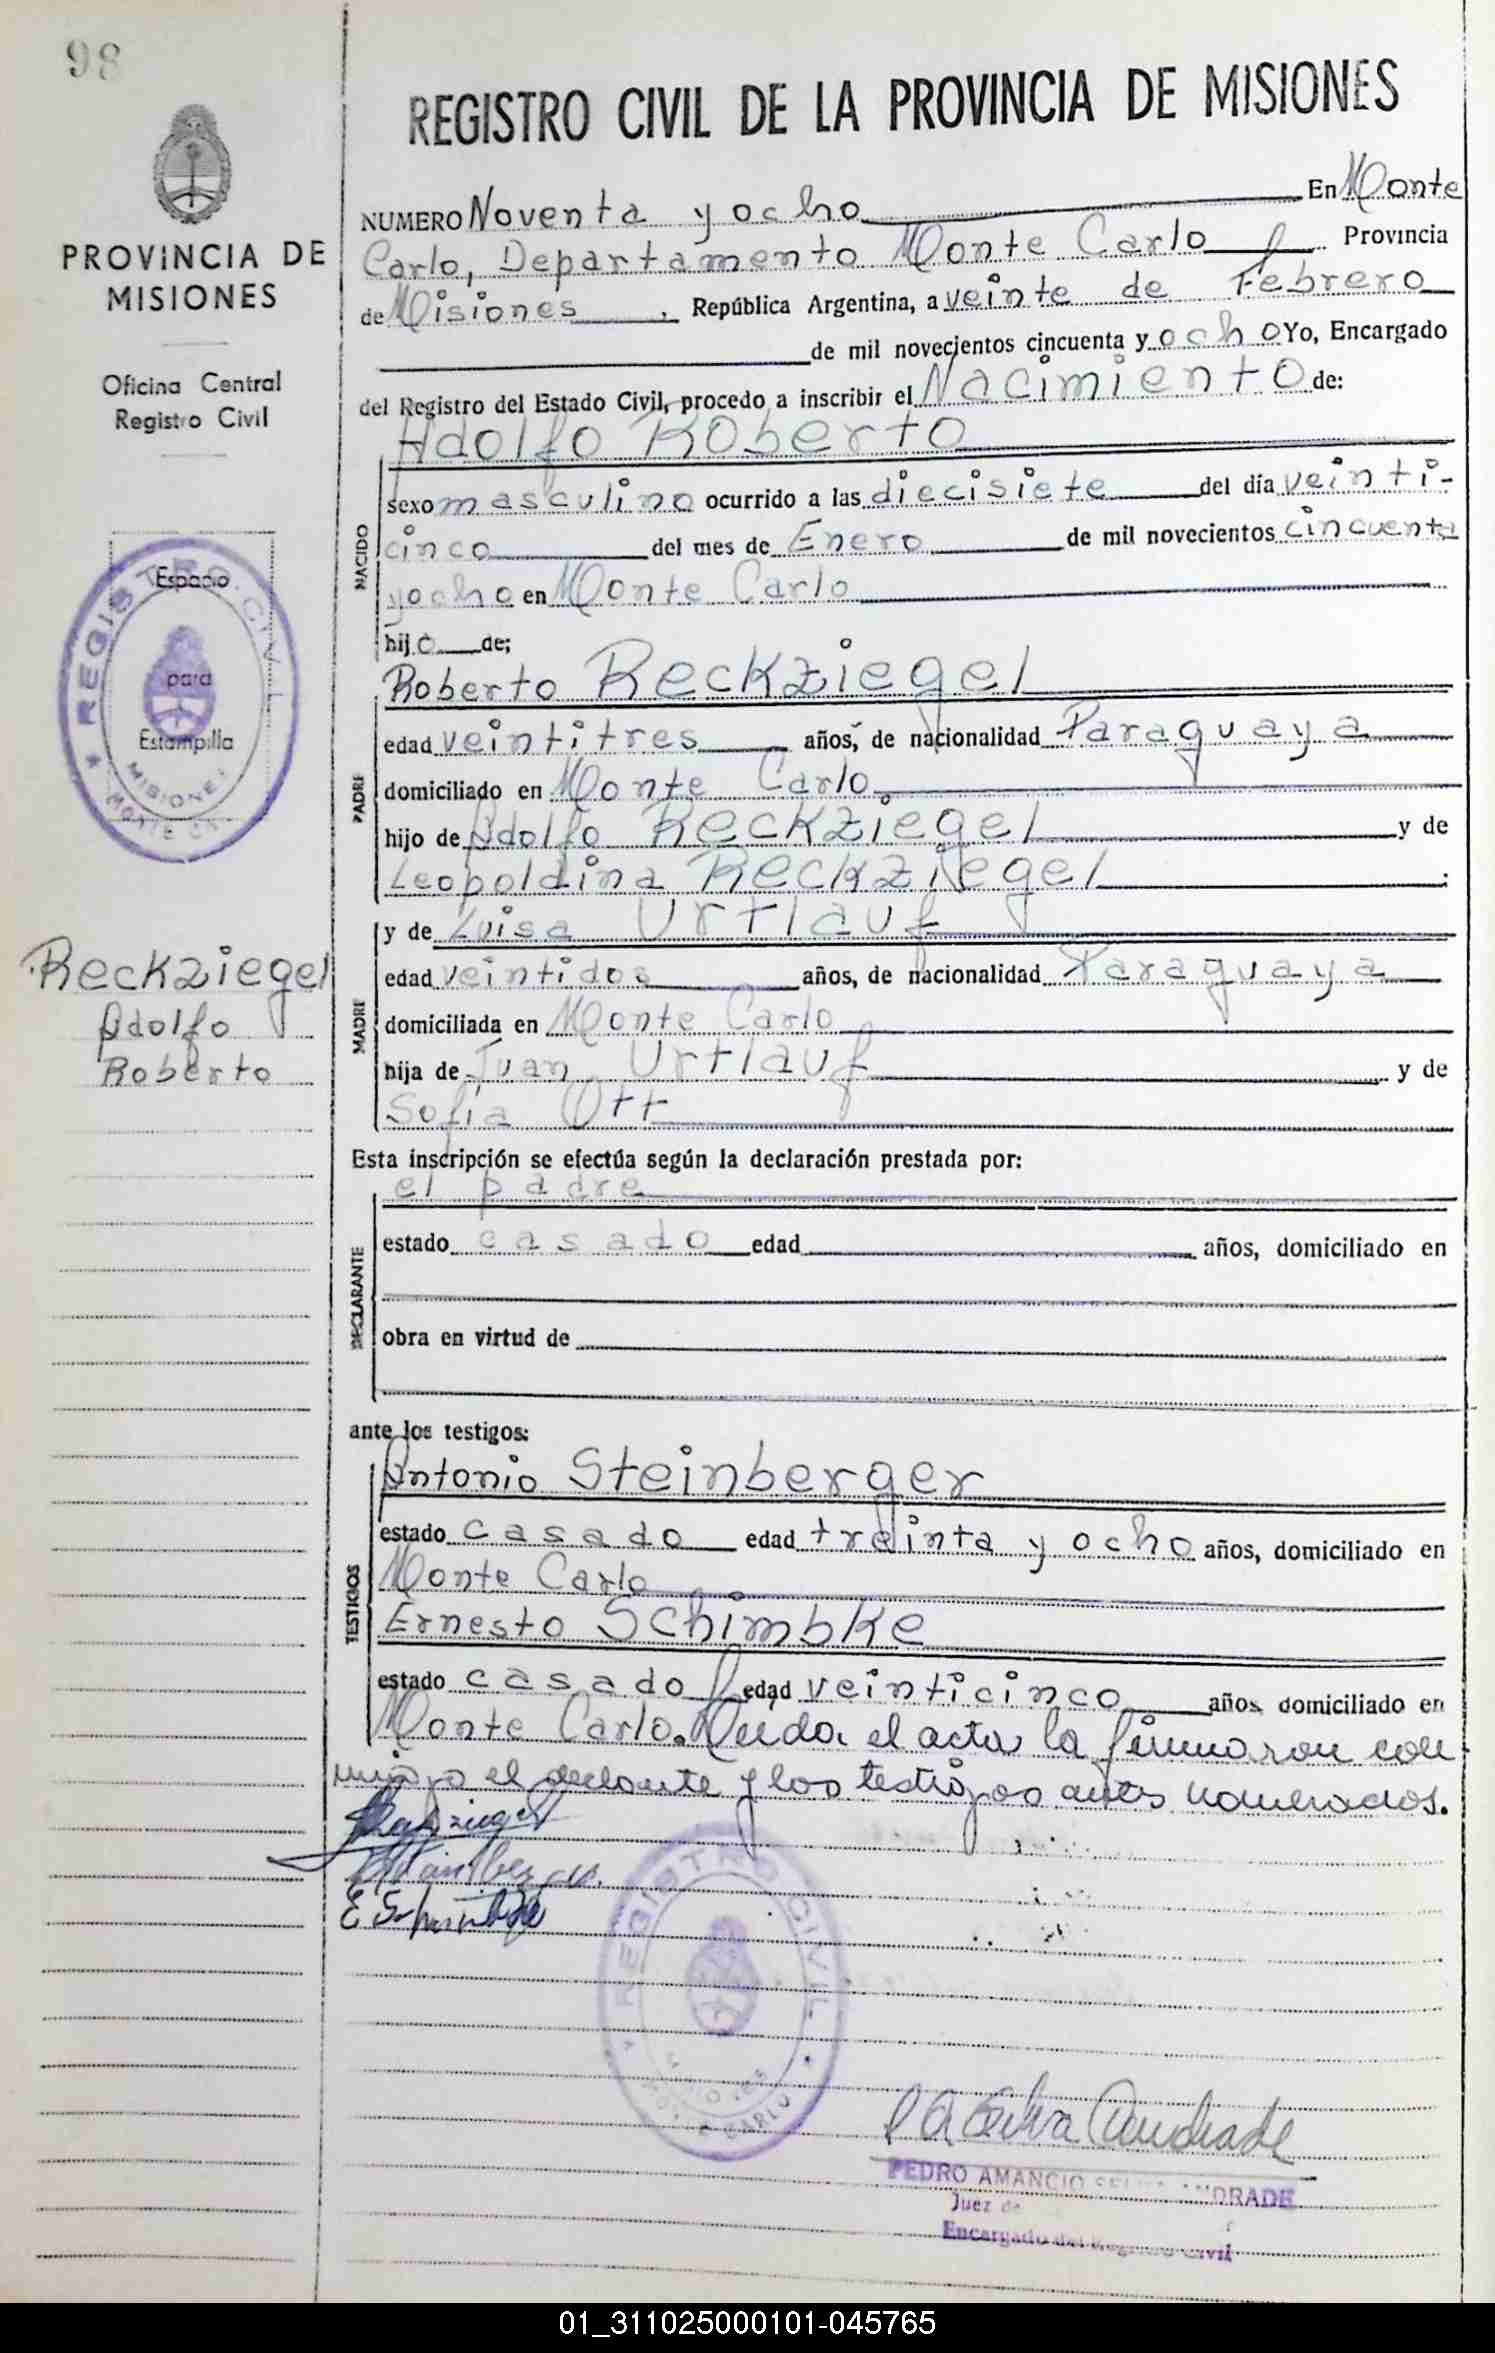 98
PROVINCIA DE
MISIONES
Oficina Central
Registro Civil
REGISTRO CIVIL
Espacio
para
Estampilla
MISIONES
MONTE
Reckziegel
Adolfo
Roberto
REGISTRO CIVIL DE LA PROVINCIA DE MISIONES
NUMERO Noventa y ocho En Monte
Carlo, Departamento Monte Carlo Provincia
de Misiones, República Argentina, a veinte de Febrero
de mil novecientos cincuenta y ocho Yo, Encargado
del Registro del Estado Civil, procedo a inscribir el Nacimiento de:
NACIDO
Adolfo Roberto
sexo masculino ocurrido a las diecisiete del día veinti-
cinco del mes de Enero de mil novecientos cincuenta
y ocho en Monte Carlo
hijo de;
PADRE
Roberto Reckziegel
edad veintitres años, de nacionalidad Paraguaya
domiciliado en Monte Carlo
hijo de Adolfo Reckziegel y de
Leopoldina Reckziegel
MADRE
y de Luisa Urtlauf
edad veintidos años, de nacionalidad Paraguaya
domiciliada en Monte Carlo
hija de Juan Urtlauf y de
Sofia Ott
Esta inscripción se efectúa según la declaración prestada por:
DECLARANTE
el padre
estado casado edad años, domiciliado en
obra en virtud de
ante los testigos:
TESTIGOS
Antonio Steinberger
estado casado edad treinta y ocho años, domiciliado en
Monte Carlo
Ernesto Schimbke
estado casado edad veinticinco años, domiciliado en
Monte Carlo. Leida el acta la firmaron con
migo el declante y los testigos antes nombrados.
REGISTRO CIVIL
CARLO
P A Silva Andrade
PEDRO AMANCIO ANDRADE
Juez de
Encargado del Registro Civil
01_311025000101-045765